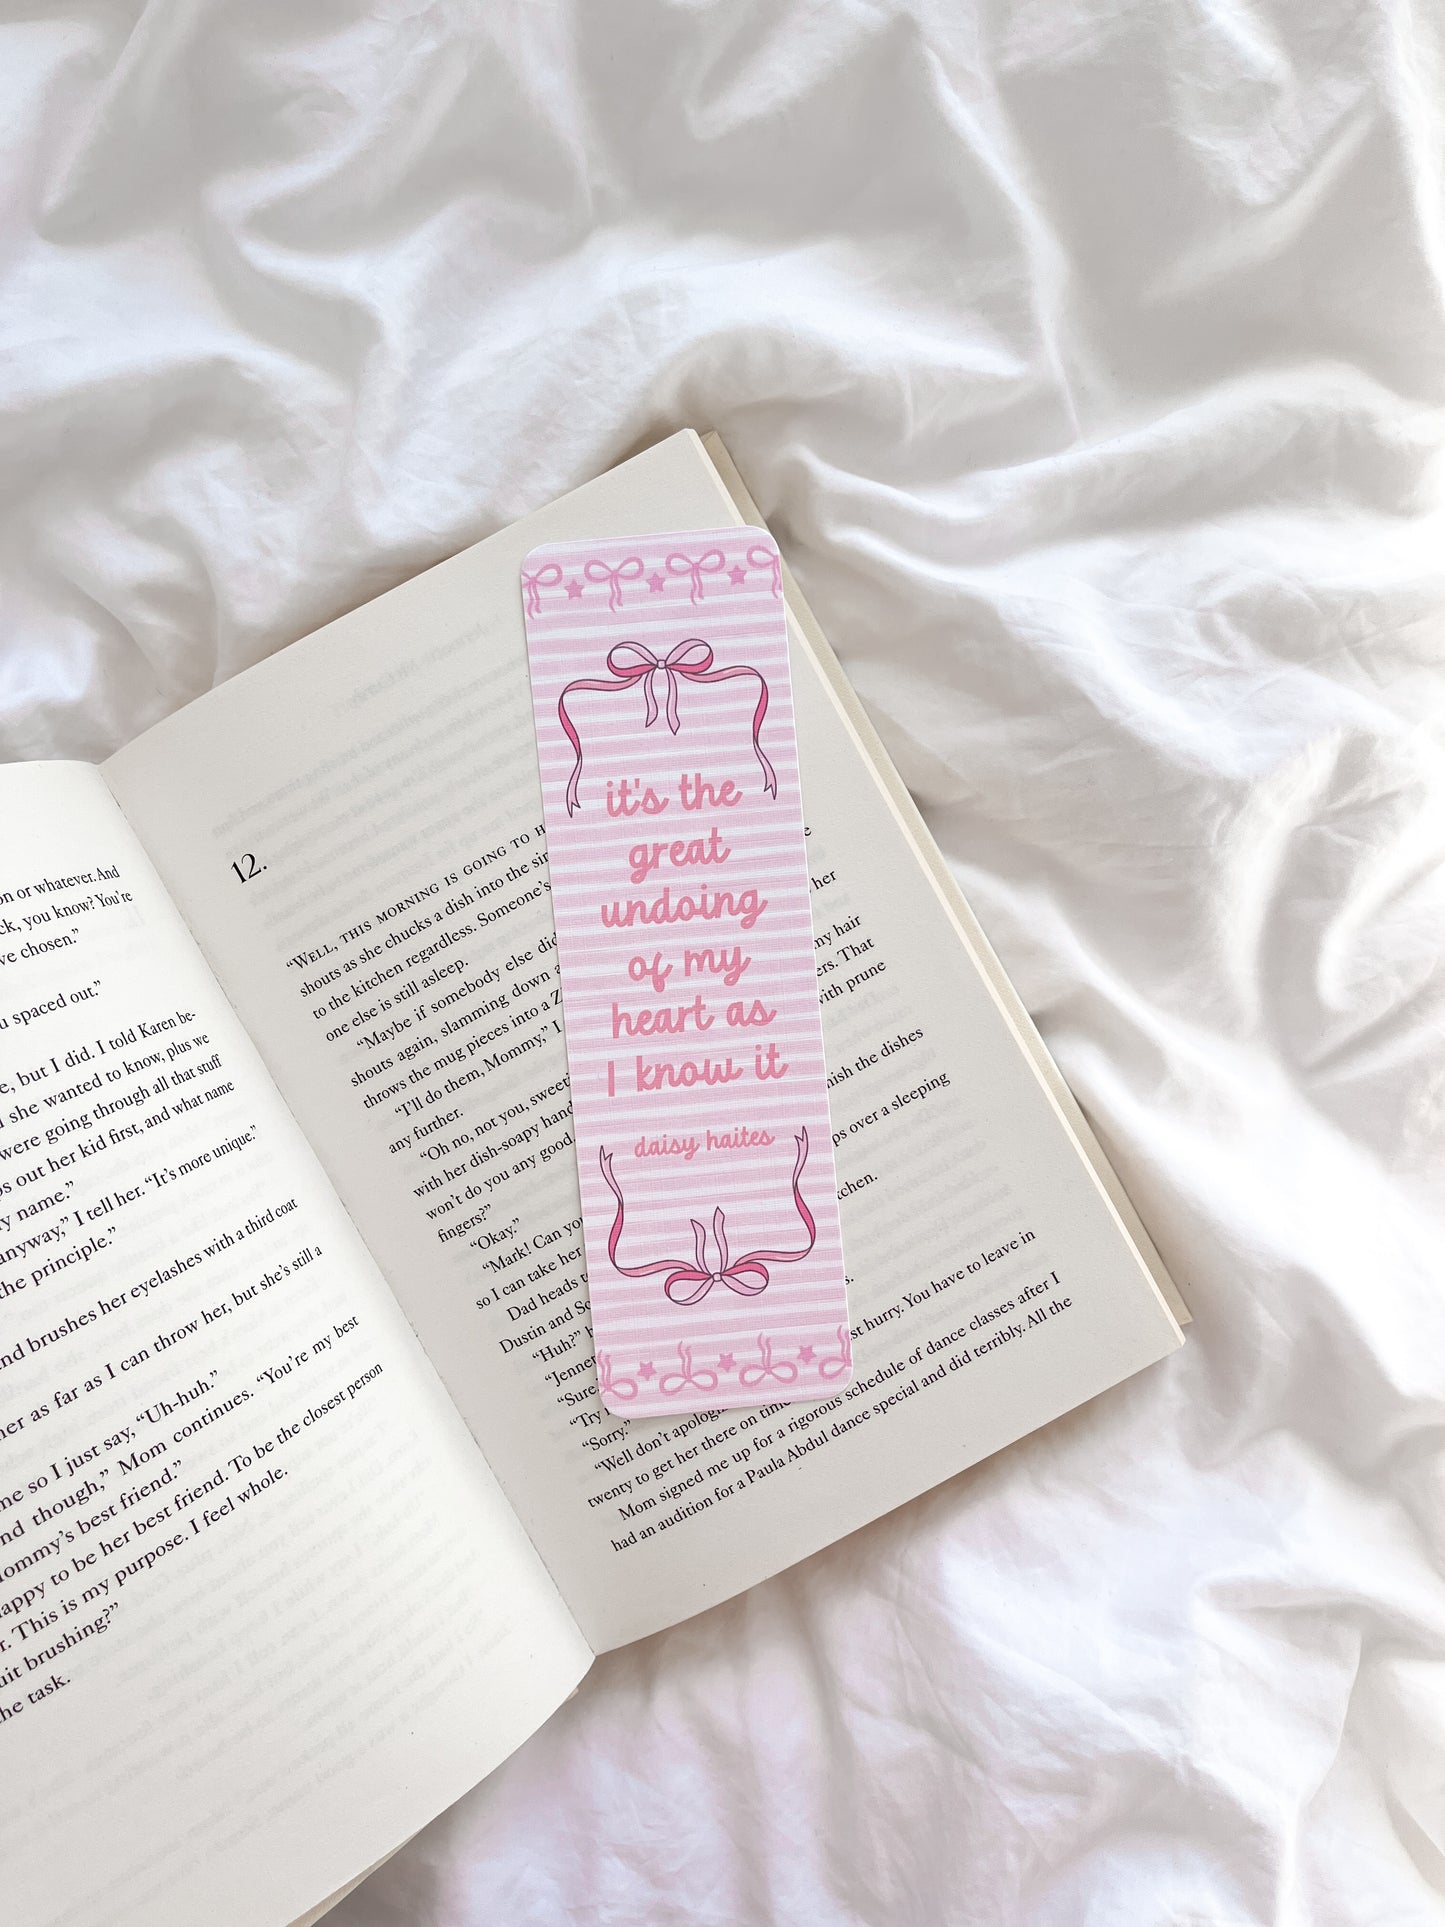 on or whatever. And
ck, you know? You're
ve chosen."
u spaced out."
e, but I did. I told Karen be-
d she wanted to know, plus we
were going through all that stuff
ps out her kid first, and what name
y name."
anyway," I tell her. "It's more unique."
the principle."
nd brushes her eyelashes with a third coat
her as far as I can throw her, but she's still a
me so I just say, "Uh-huh."
nd though," Mom continues. "You're my best
Mommy's best friend."
happy to be her best friend. To be the closest person
r. This is my purpose. I feel whole.
uit brushing?"
he task.
12.
"WELL, THIS MORNING IS GOING TO H
shouts as she chucks a dish into the sin
to the kitchen regardless. Someone's
her
one else is still asleep.
"Maybe if somebody else did
my hair
shouts again, slamming down a
ers. That
throws the mug pieces into a Z
with prune
"I'll do them, Mommy," I
any further.
"Oh no, not you, sweeti
nish the dishes
with her dish-soapy hand
ps over a sleeping
won't do you any good.
fingers?"
"Okay."
tchen.
"Mark! Can you
so I can take her
Dad heads to
Dustin and Sc
s.
"Huh?" h
"Jennet
"Sure,
st hurry. You have to leave in
"Try
"Sorry."
"Well don't apologi
twenty to get her there on time
Mom signed me up for a rigorous schedule of dance classes after I
had an audition for a Paula Abdul dance special and did terribly. All the
it's the
great
undoing
of my
heart as
I know it
daisy haites